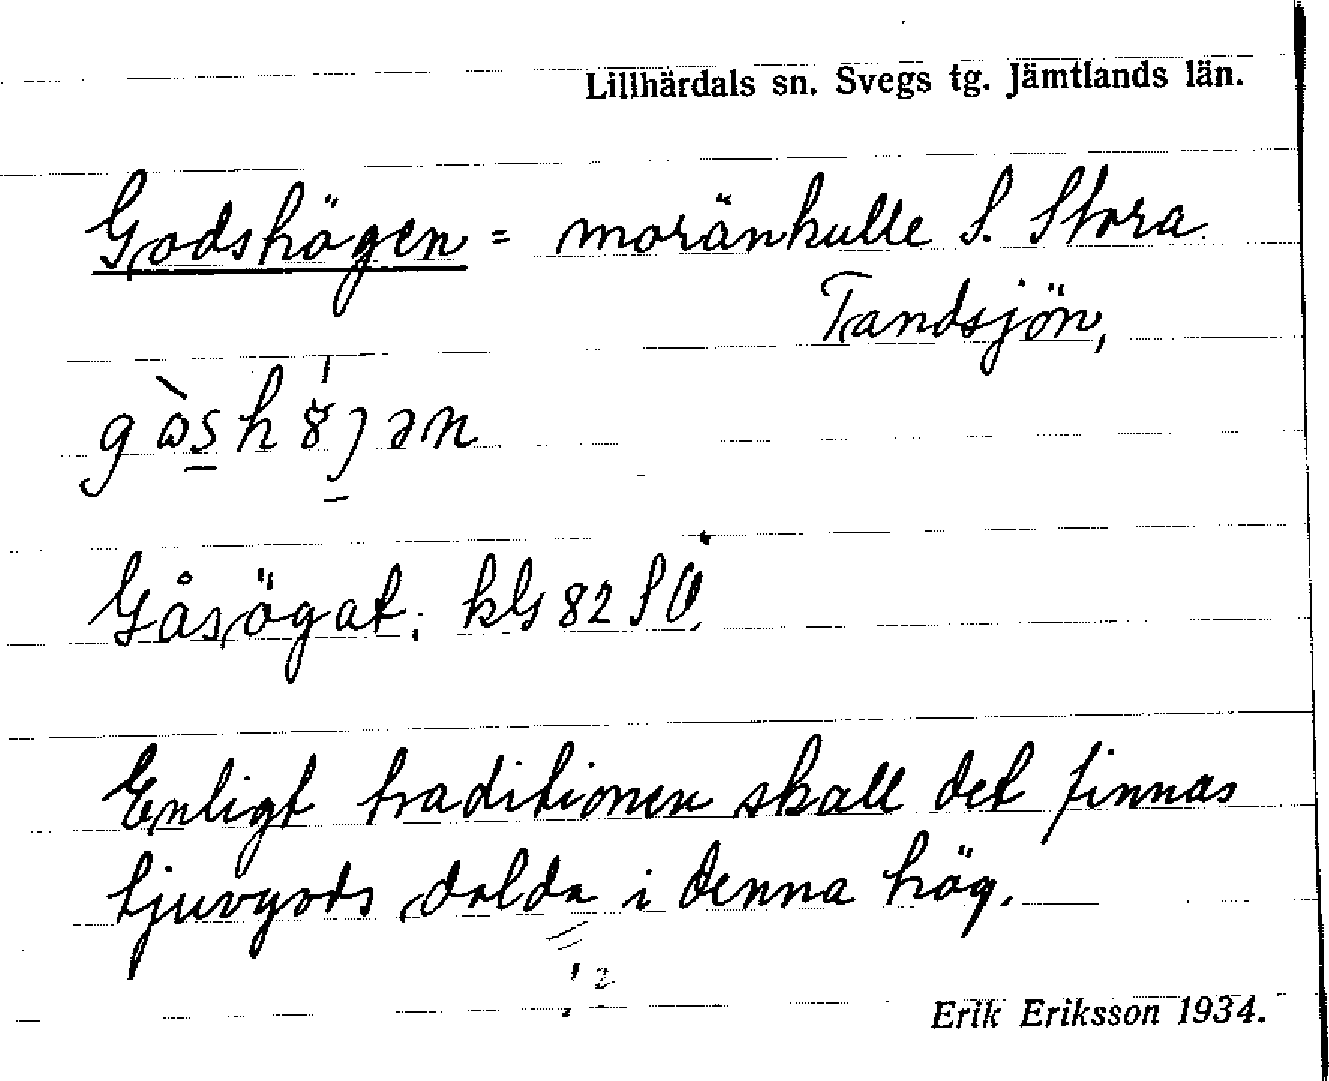 Lillhärdals sn. Svegs tg. Jämtlands län.
Godshögen = moränkulle S. Stora
Tandsjön,
Gåsögat. kls 82 SV.
Enligt traditionen skall det finnas
tjuvgods dolda i denna hög.
Erik Eriksson 1934.